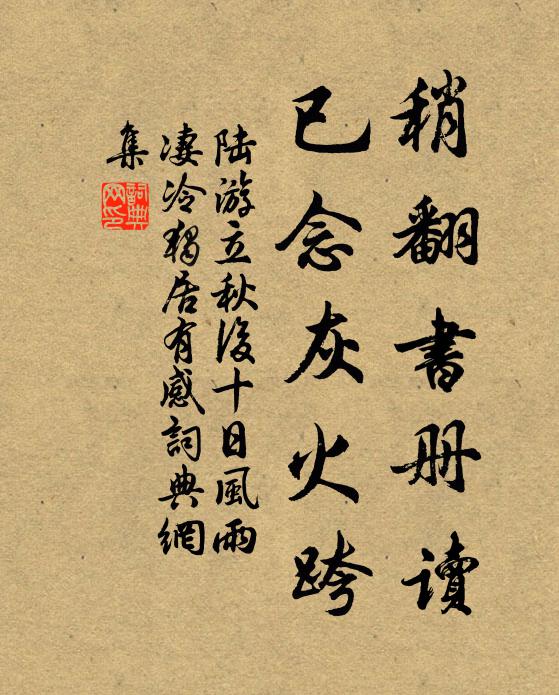 稍翻書册讀
已念灰火跨
陆游立秋後十日風雨
凄冷獨居有感詞典網
集
詞典
网印